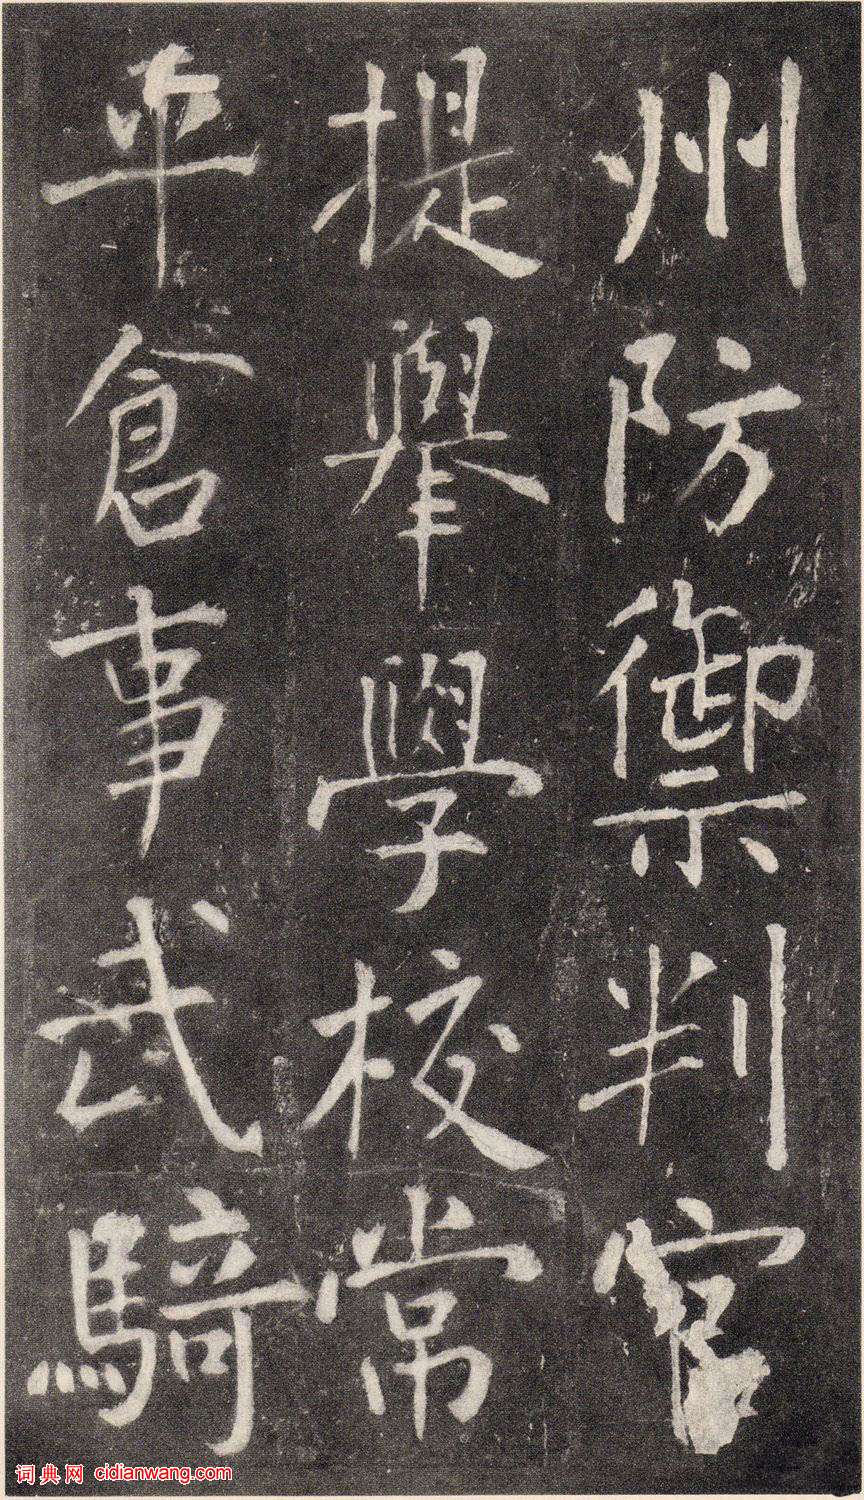 州防禦判官
提舉學校常
平倉事武騎
词典网 cidianwang.com